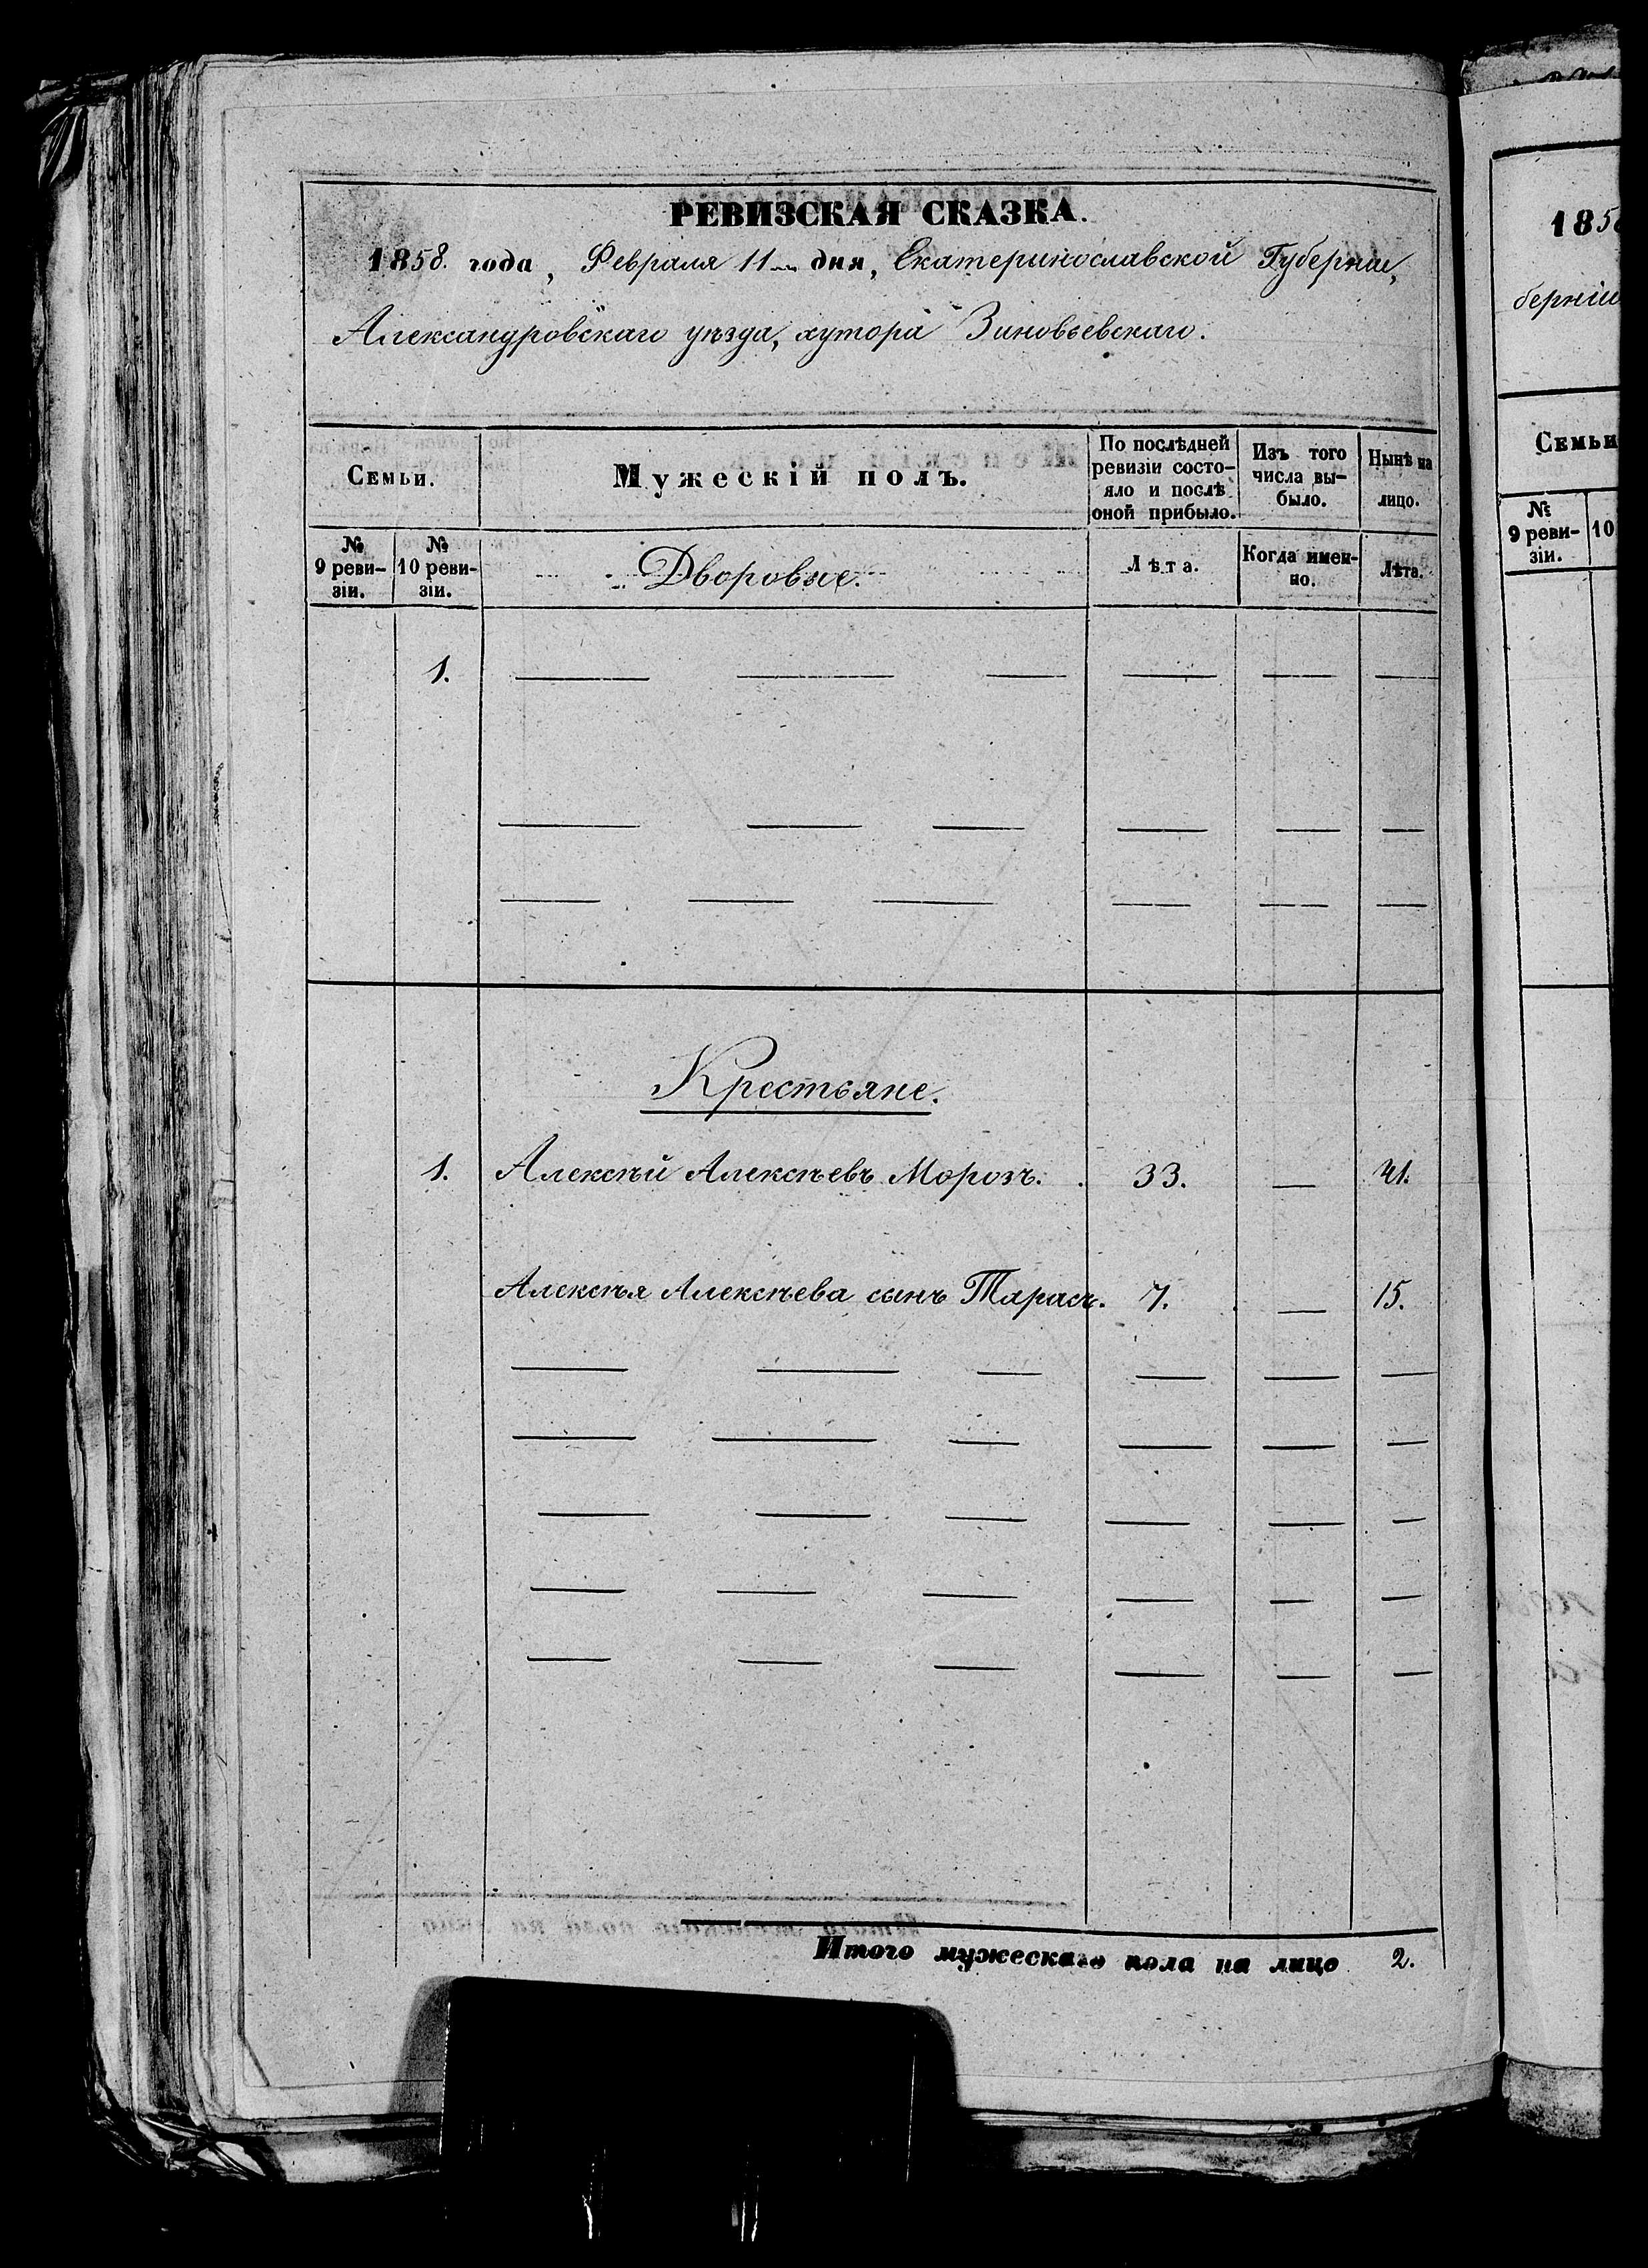 РЕВИЗСКАЯ СКАЗКА.
1858. года, Февраля 11 дня, Екатеринославской Губерніи,
Александровскаго уѣзда, хутора Зиновьевскаго.
Семьи.
Мужескій полъ.
По послѣдней
ревизіи состо-
яло и послѣ
оной прибыло.
Изъ того
числа вы-
было.
Нынѣ на
лицо.
№
9 реви-
зіи.
№
10 реви-
зіи.
Дворовые.
Лѣта.
Когда имен-
но.
Лѣта.
1. — — — — — —
— — — — — —
— — — — — —
Крестьяне.
1. Алексѣй Алексѣевъ Морозъ. . 33. — 41.
Алексѣя Алексѣева сынъ Тарасъ. 7. — 15.
— — — — — —
— — — — — —
— — — — — —
— — — — — —
— — — — — —
Итого мужескаго пола на лицо 2.
185
берніи
Семьи
№
9 реви-
зіи.
10